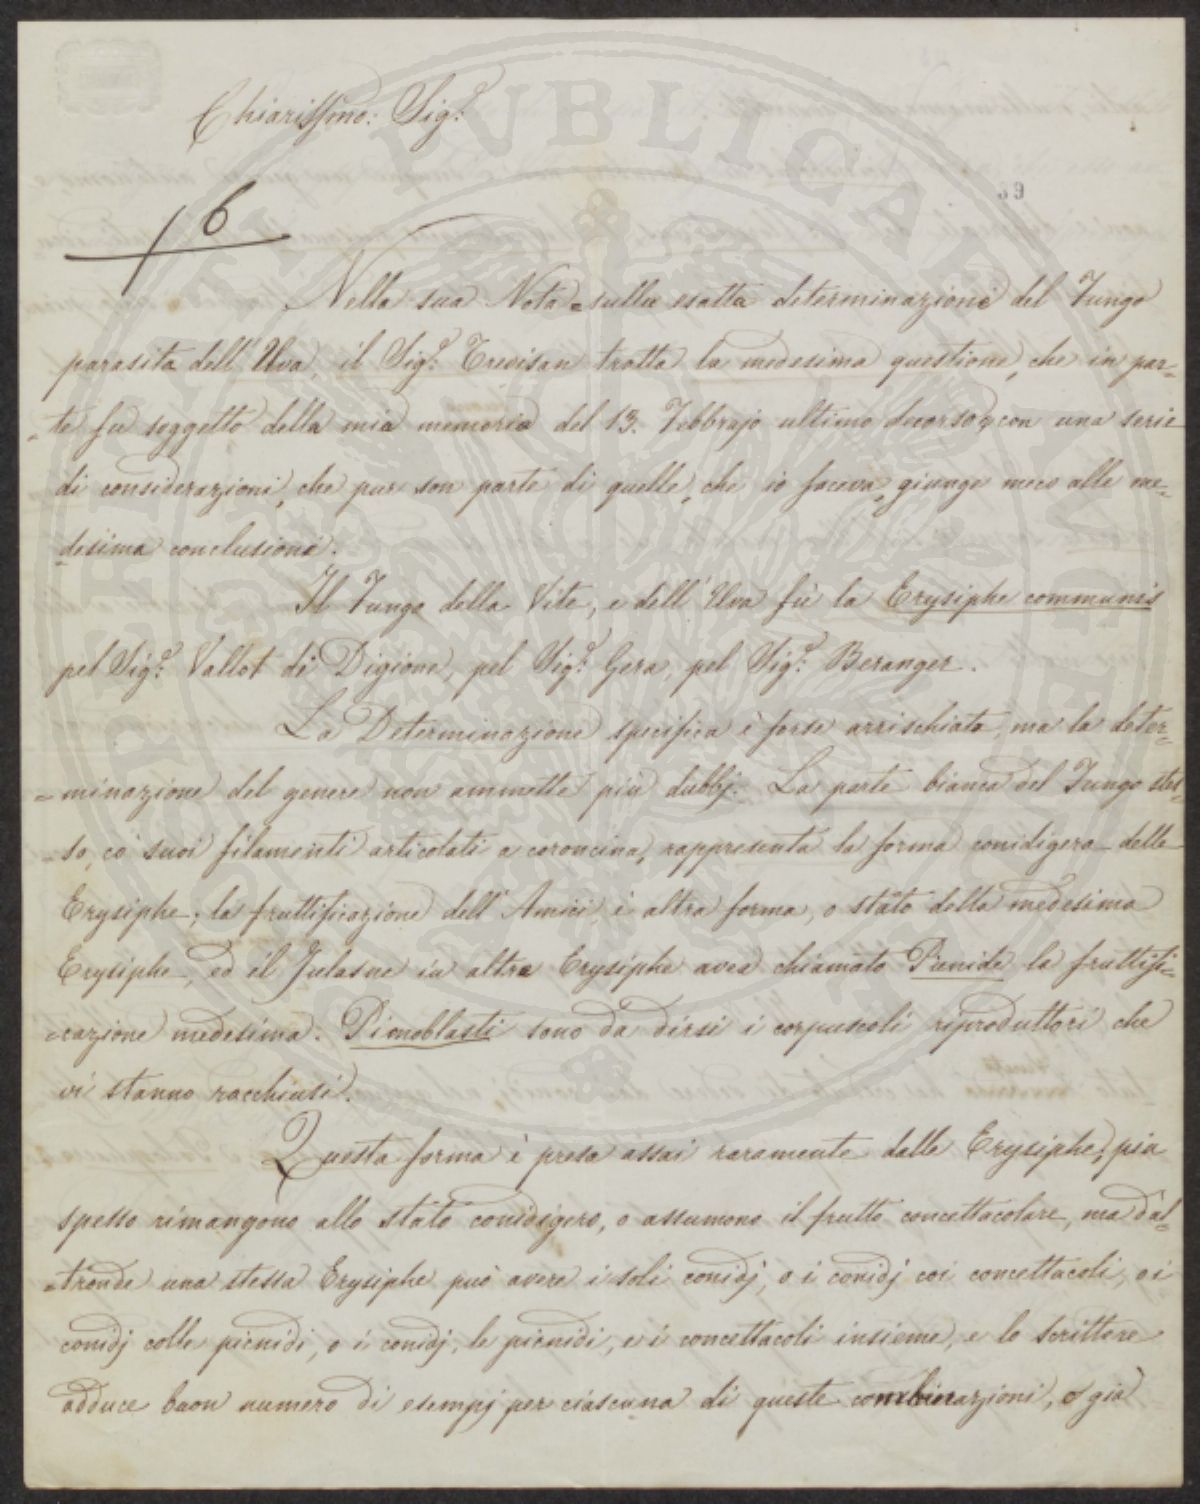 Chiarissimo: Sig.r
39
6
Nella sua Nota sulla esatta determinazione del Fungo
parasita dell'Uva, il Sig.r Trevisan tratta la medesima questione, che in par-
-te fu soggetto della mia memoria del 13. Febbrajo ultimo decorso, con una serie
di considerazioni, che pur son parte di quelle, che io faceva, giunge meco alle me-
-desima conclusione.
Il Fungo della Vite, e dell'Uva fù la Erysiphe communis
pel Sig.r Vallot di Digione, pel Sig.r Gera, pel Sig.r Beranger.
La Determinazione specifica è forse arrischiata, ma la deter-
-minazione del genere non ammette più dubbj. La parte bianca del Fungo stes-
-so, co' suoi filamenti articolati a coroncina, rappresenta la forma conidigera delle
Erysiphe; la fruttificazione dell'Amici, è altra forma, o stato della medesima
Erysiphe, ed il Tulasne in altre Erysiphe avea chiamato Picnide la fruttifi-
-cazione medesima. Picnoblasti sono da dirsi i corpuscoli riproduttori che
vi stanno racchiusi.
Questa forma è presa assai raramente dalle Erysiphe; più
spesso rimangono allo stato conidigero, o assumono il frutto concettacolare, ma d'al-
-tronde una stessa Erysiphe può avere i soli conidj, o i conidj coi concettacoli, o i
conidj colle picnidi, o i conidj, le picnidi, e i concettacoli insieme, e lo Scrittore
adduce buon numero di esempj per ciascuna di queste combinazioni, o già
PERITI PVBLICAE